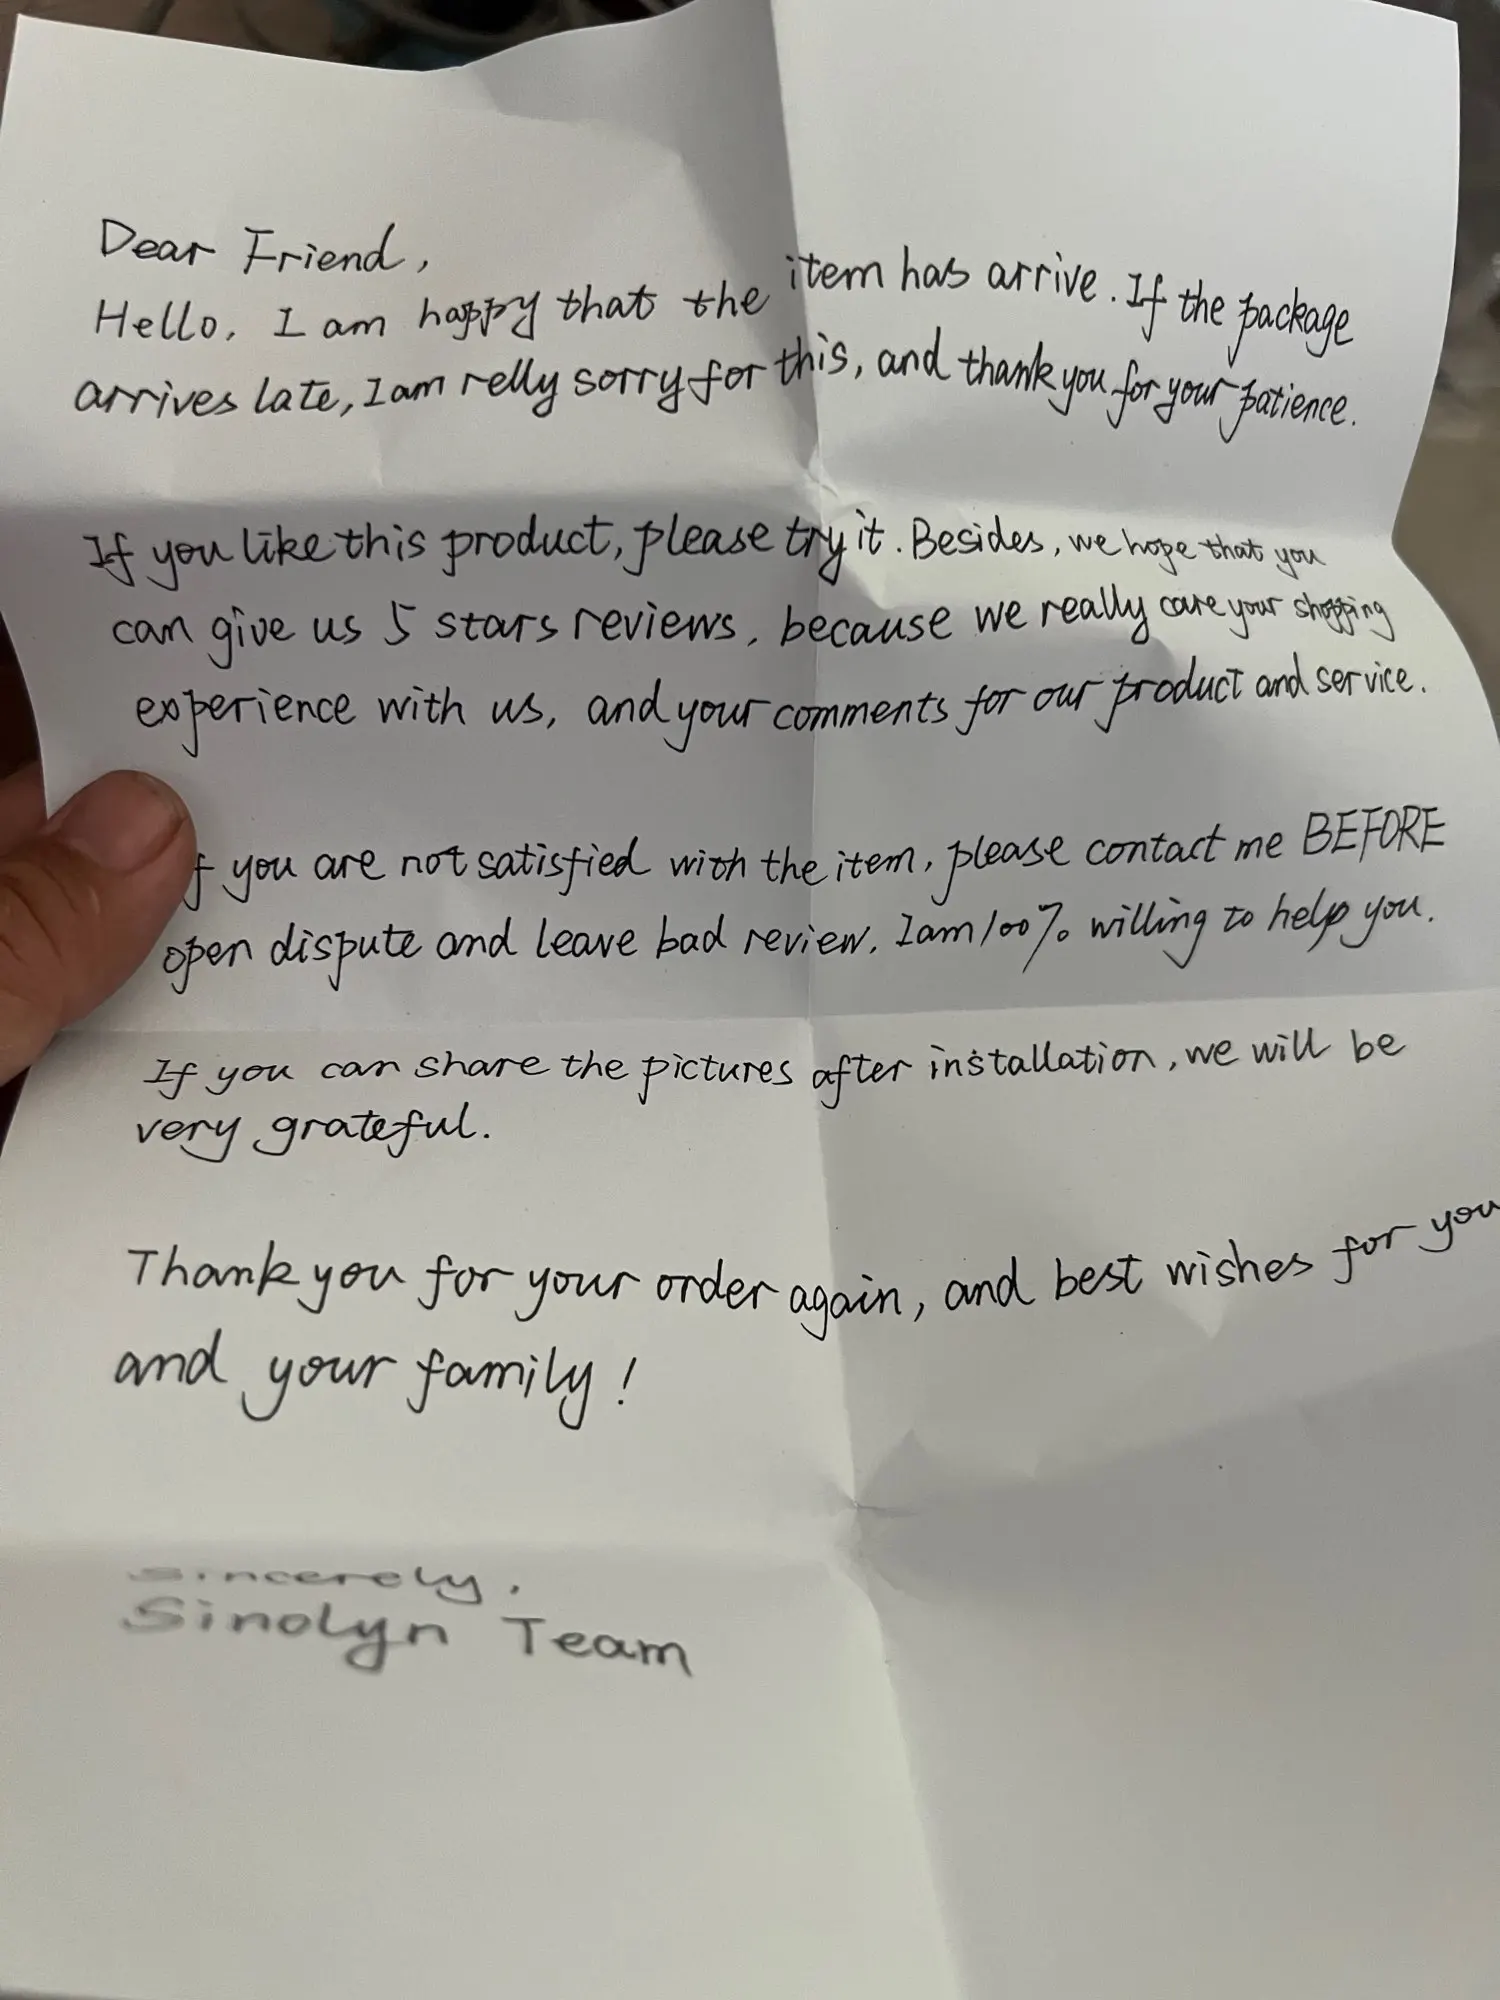 Dear Friend,
Hello, I am happy that the item has arrive. If the package
arrives late, I am relly sorry for this, and thank you for your patience.
If you like this product, please try it. Besides, we hope that you
can give us 5 stars reviews, because we really care your shopping
experience with us, and your comments for our product and service.
f you are not satisfied with the item, please contact me BEFORE
open dispute and leave bad review. I am 100% willing to help you.
If you can share the pictures after installation, we will be
very grateful.
Thank you for your order again, and best wishes for you
and your family!
Sincerely,
Sinolyn Team